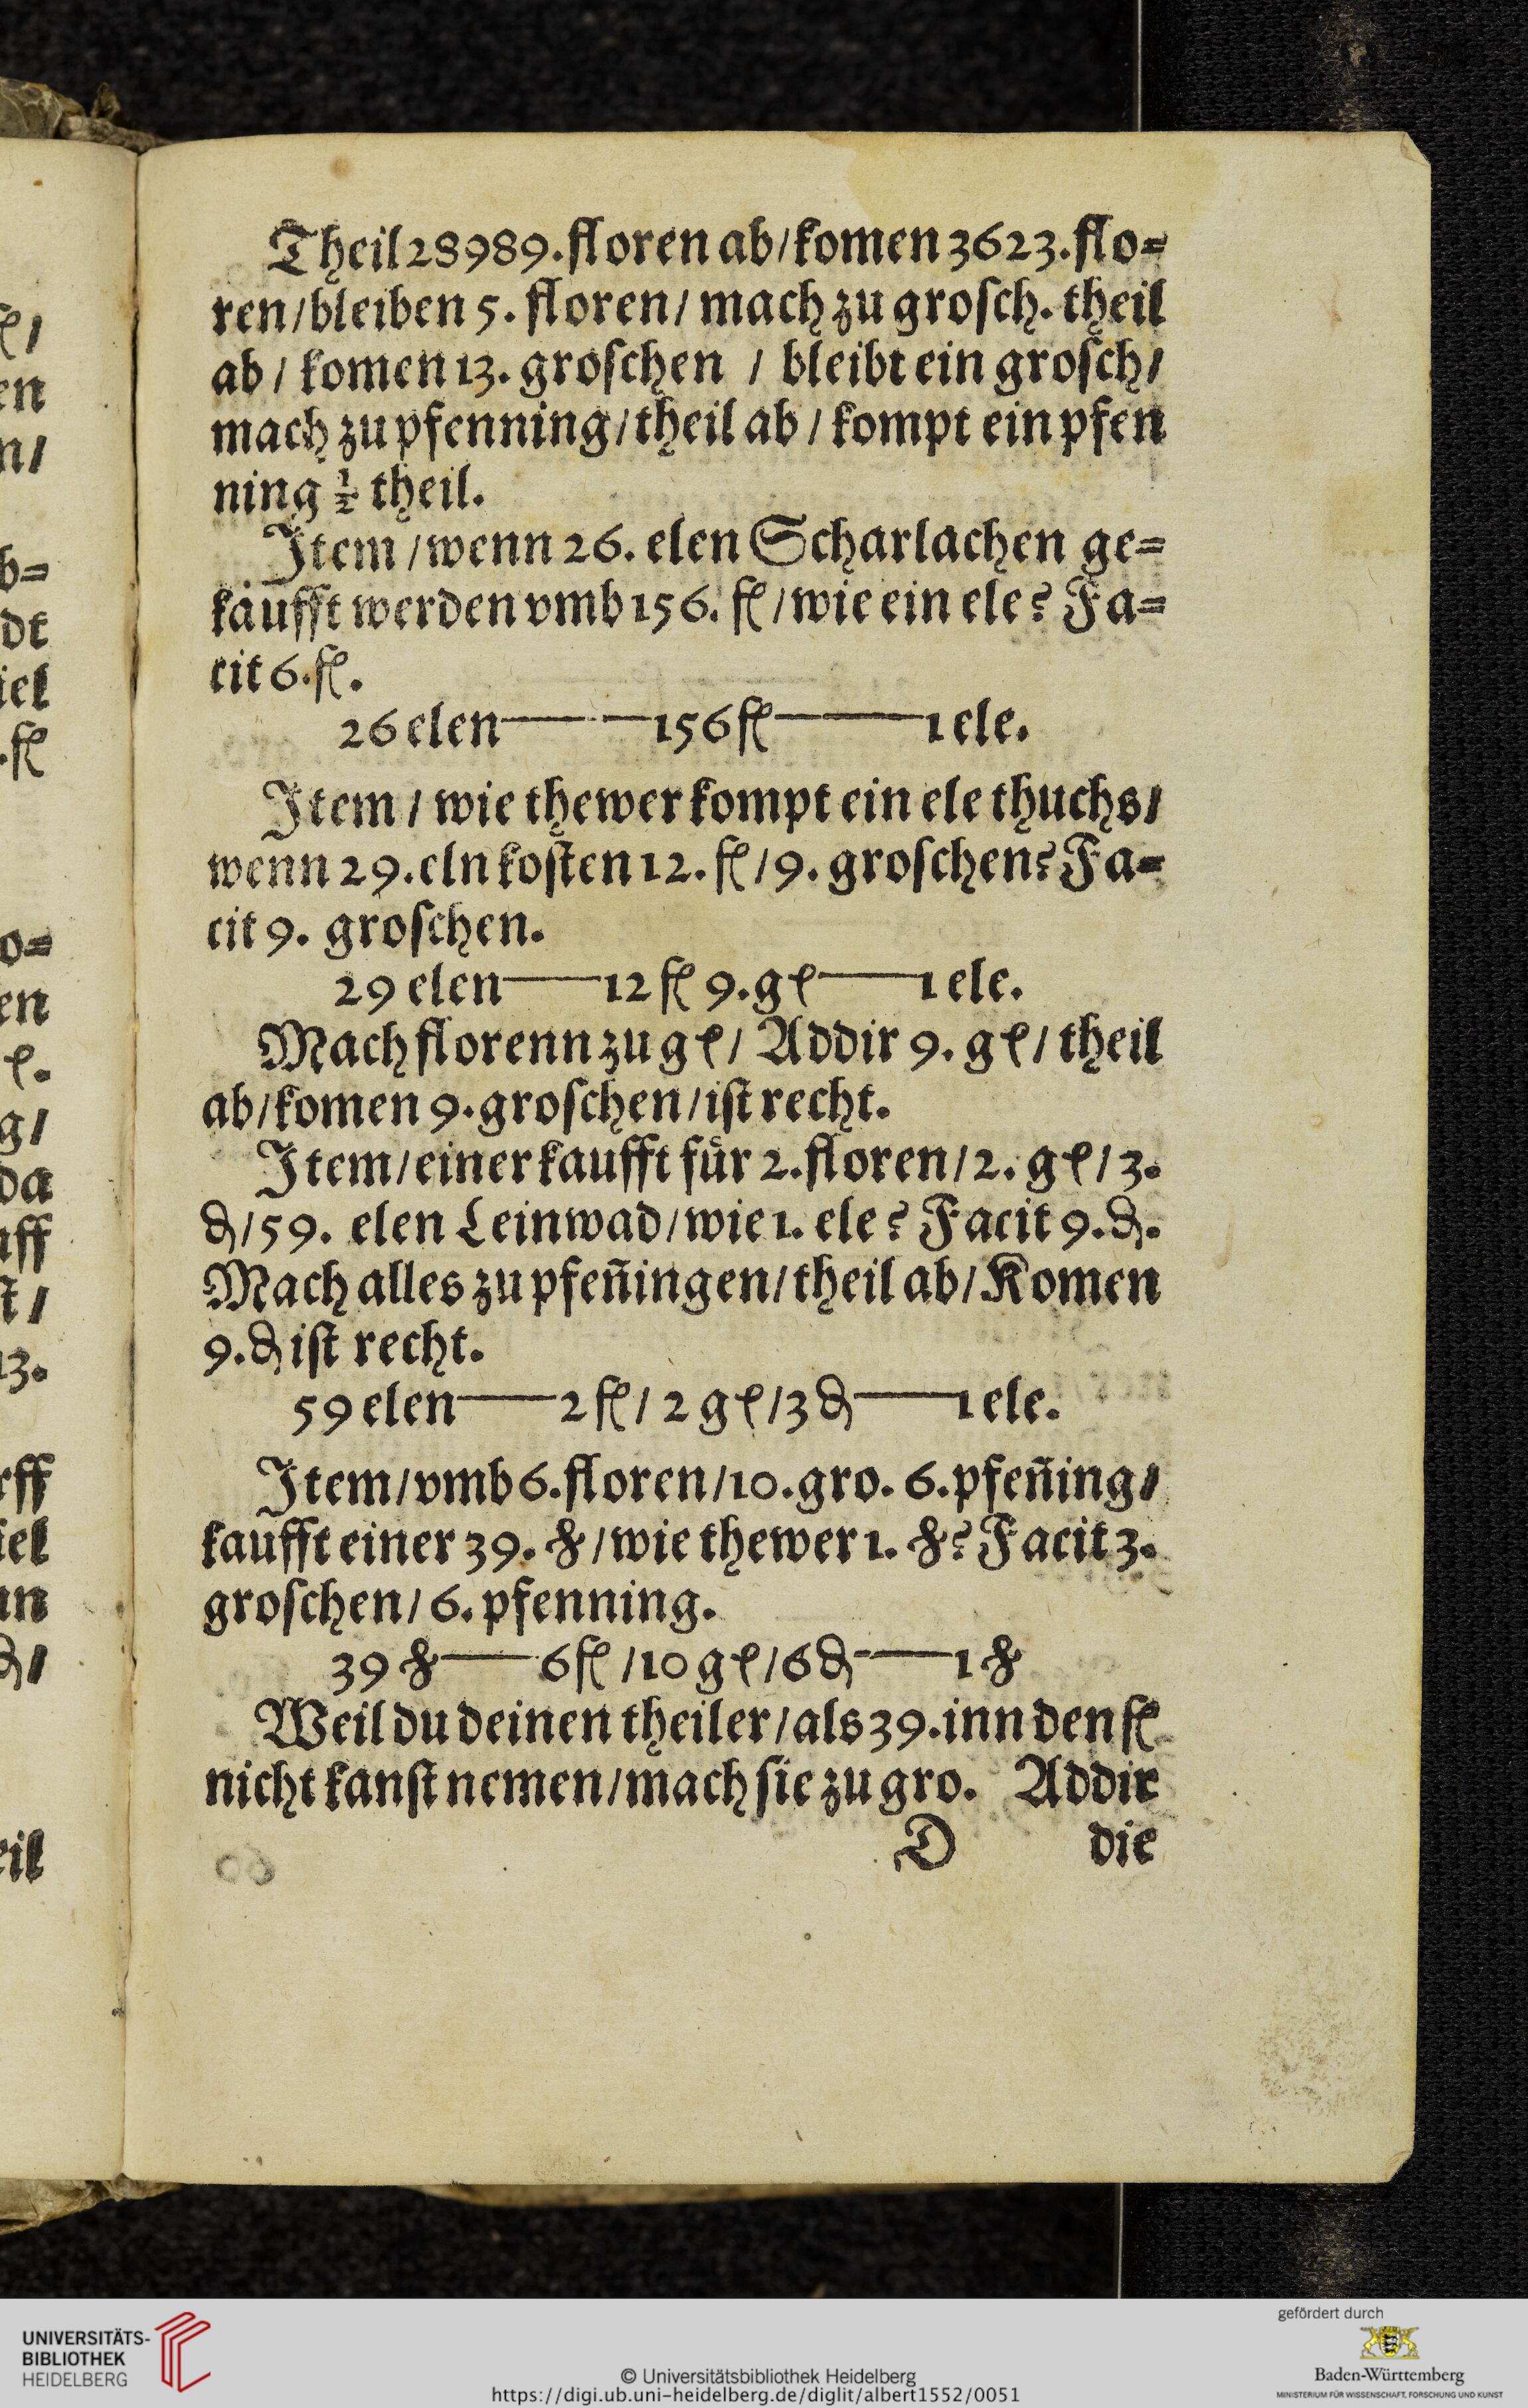 Theil 28989. floren ab / komen 3623. flo=
ren / bleiben 5. floren / mach zu grosch. theil
ab / komen 13. groschen / bleibt ein grosch /
mach zu pfenning / theil ab / kompt ein pfen
ning ½ theil.
Item / wenn 26. elen Scharlachen ge=
kaufft werden vmb 156. fl / wie ein ele? Fa=
cit 6. fl.
26 elen —— 156 fl —— 1 ele.
Item / wie thewer kompt ein ele thuchs /
wenn 29. eln kosten 12. fl / 9. groschen? Fa=
cit 9. groschen.
29 elen —— 12 fl 9. gℓ —— 1 ele.
Mach florenn zu gℓ / Addir 9. gℓ / theil
ab / komen 9. groschen / ist recht.
Item / einer kaufft für 2. floren / 2. gℓ / 3.
₰ / 59. elen Leinwad / wie 1. ele? Facit 9. ₰.
Mach alles zu pfen̄ingen / theil ab / Komen
9. ₰ ist recht.
59 elen —— 2 fl / 2 gℓ / 3 ₰ —— 1 ele.
Item / vmb 6. floren / 10. gro. 6. pfen̄ing /
kaufft einer 39. ℔ / wie thewer 1. ℔? Facit 3.
groschen / 6. pfenning.
39 ℔ —— 6 fl / 10 gℓ / 6 ₰ —— 1 ℔
Weil du deinen theiler / als 39. inn den fl
nicht kanst nemen / mach sie zu gro. Addir
D die
UNIVERSITÄTS-
BIBLIOTHEK
HEIDELBERG
© Universitätsbibliothek Heidelberg
https://digi.ub.uni-heidelberg.de/diglit/albert1552/0051
gefördert durch
Baden-Württemberg
MINISTERIUM FÜR WISSENSCHAFT, FORSCHUNG UND KUNST